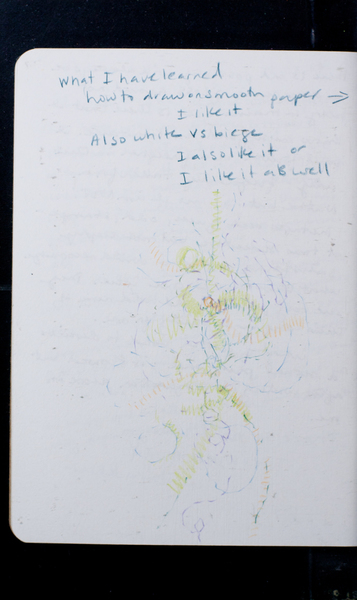 What I have learned
how to draw on smooth paper →
I like it
Also white vs biege
I also like it or
I like it as well